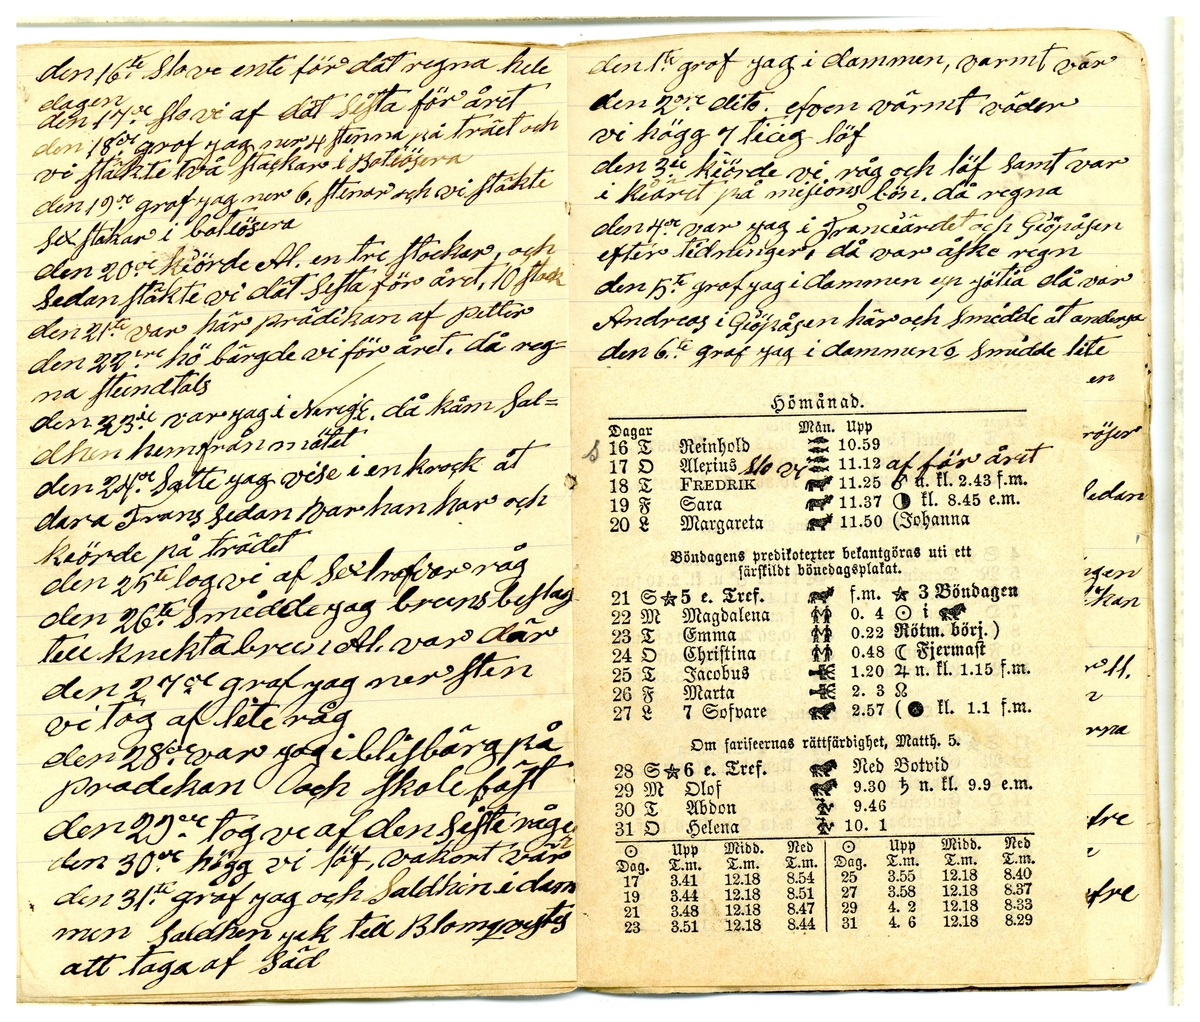 den 16te slo ve ente för dät regna hele
dagen
den 17de slo vi af dät sista för året
den 18de graf jag ner 4 stenna på träet och
vi stäkte två stäckar i Botiösera
den 19de graf jag ner 6, stenar och vi stäkte
sex stäkar i botiösera
den 20de kiörde Al. en tre stockar, och
sedan stäkte vi dät sista för året, 10 stäck
den 21te var här prädikan af petter
den 22dre hö bärgde vi för året. då reg=
na stundtals
den 23ie var jag i Nerige. då kåm Sal=
dhen hem från mötet
den 24de Satte jag vise i en krock åt
dara Frans sedan var han har och
kiörde på trädet
den 25te tog vi af sex trafvar råg
den 26te smedde jag breens beslag
till knektabreen Al. var där
den 27de graf jag ner sten
vi tog af lite råg
den 28de var jag i blisbärg på
prädekan och skole fäst
den 29de tog ve af den siste råge
den 30de högg vi löf, vakort vär
den 31te graf jag och Saldhin i dam
men Saldhen gek till Blomqvists
att taga af säd
den 1te graf jag i dammen, varmt vär
den 2dre dito. efven värmt väder
vi högg 7 tieg löf
den 3ie kiörde vi råg och löf samt var
i kiäret på misions bön. då regna
den 4de var jag i Franciäret och Giöpåsen
efter tidninger, då var åske regn
den 5te graf jag i dammen en jötia då var
Andreas i Giöpåsen här och smedde åt anderja
den 6te graf jag i dammen o smedde lite
en
röser
sedan
ngen
kan
r 11.
rna
fre
fre
Hömånad.
Dagar Mån. Upp
s 16 T Reinhold 10.59
17 O Alexius slo vi 11.12 af för året
18 T FREDRIK 11.25 ♂ u. kl. 2.43 f.m.
19 F Sara 11.37 ◑ kl. 8.45 e.m.
20 L Margareta 11.50 (Johanna
Böndagens predikotexter bekantgöras uti ett
särskildt bönedagsplakat.
21 S ★ 5 e. Tref. f.m. ★ 3 Böndagen
22 M Magdalena 0. 4 ☉ i ♌
23 T Emma 0.22 Rötm. börj.)
24 O Christina 0.48 ☾ Fjermast
25 T Jacobus 1.20 ♃ n. kl. 1.15 f.m.
26 F Marta 2. 3 ☊
27 L 7 Sofvare 2.57 (● kl. 1.1 f.m.
Om fariseernas rättfärdighet, Matth. 5.
28 S ★ 6 e. Tref. Ned Botvid
29 M Olof 9.30 ♄ n. kl. 9.9 e.m.
30 T Abdon 9.46
31 O Helena 10. 1
☉ Upp Midd. Ned ☉ Upp Midd. Ned
Dag. T.m. T.m. T.m. Dag. T.m. T.m. T.m.
17 3.41 12.18 8.54 25 3.55 12.18 8.40
19 3.44 12.18 8.51 27 3.58 12.18 8.37
21 3.48 12.18 8.47 29 4. 2 12.18 8.33
23 3.51 12.18 8.44 31 4. 6 12.18 8.29